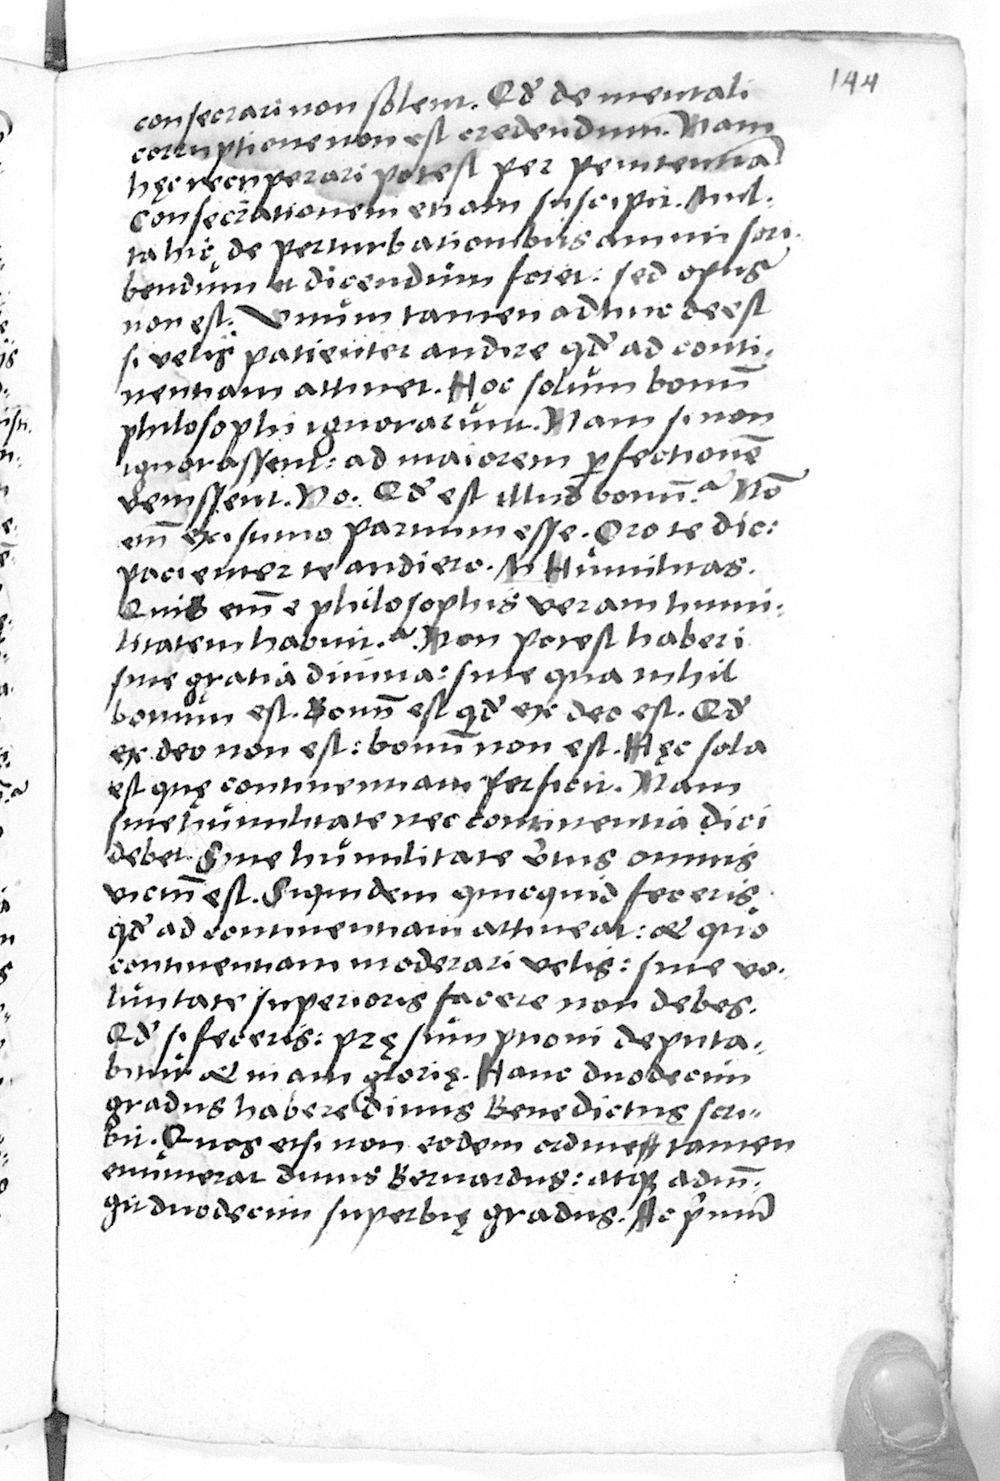 144
consecrari non solent. Qđ de mentali
corruptione non est credendum. Nam
hęc recuperari potest per penitentiā
Consecrationem etiam suscipit. Mul-
ta hic de perturbationibus animi scri-
bendum et dicendum foret: sed opus
non est. Vnum tamen adhuc deest
si velis patienter audire qđ ad conti-
nentiam attinet. Hoc solum bonū
philosophi ignorarunt. Nam si non
ignorassent: ad maiorem pfectionē
venissent. No. Qđ est illud bonū? Nō
em̄ existimo paruum esse. Oro te dic:
pacienter te audiero. M Humilitas.
Quis em̄ e philosophis veram humi-
litatem habuit? Non potest haberi
sine gratia diuina: sine qua nihil
bonum est. Bonū est qđ ex deo est. Qđ
ex deo non est: bonū non est. Hęc sola
est quę continentiam perficit. Nam
sine humilitate nec continentia dici
debet. Sine humilitate v̄tus omnis
viciū est. Siquidem quicquid feceris
qđ ad continentiam attineat: & quo
continentiam moderari velis: sine vo-
luntate superioris facere non debes.
Qđ si feceris: pręsumptioni deputa-
bitur & inani glorię. Hanc duodecim
gradus habere diuus Benedictus scri-
bit. Quos etsi non eodem ordine tamen
enumerat diuus Bernardus: atqꝫ adiū-
git duodecim superbię gradus. Ac p̄imū